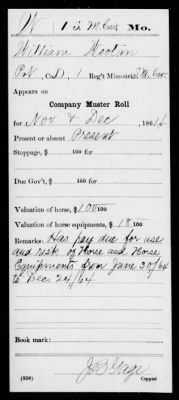 W 1 S. M. Cav. Mo.
William Wootin
Pvt, Co. D, 1 Reg't Missouri S. M. Cav.
Appears on
Company Muster Roll
for Nov & Dec, 1864
Present or absent Present
Stoppage, $ 100 for
Due Gov't, $ 100 for
Valuation of horse, $ 100 100
Valuation of horse equipments, $ 15 100
Remarks: Has pay due for use
and risk of Horse and Horse
Equipments from June 30/64
to Dec 24/64
Book mark:
J B Gage
(358) Copyist